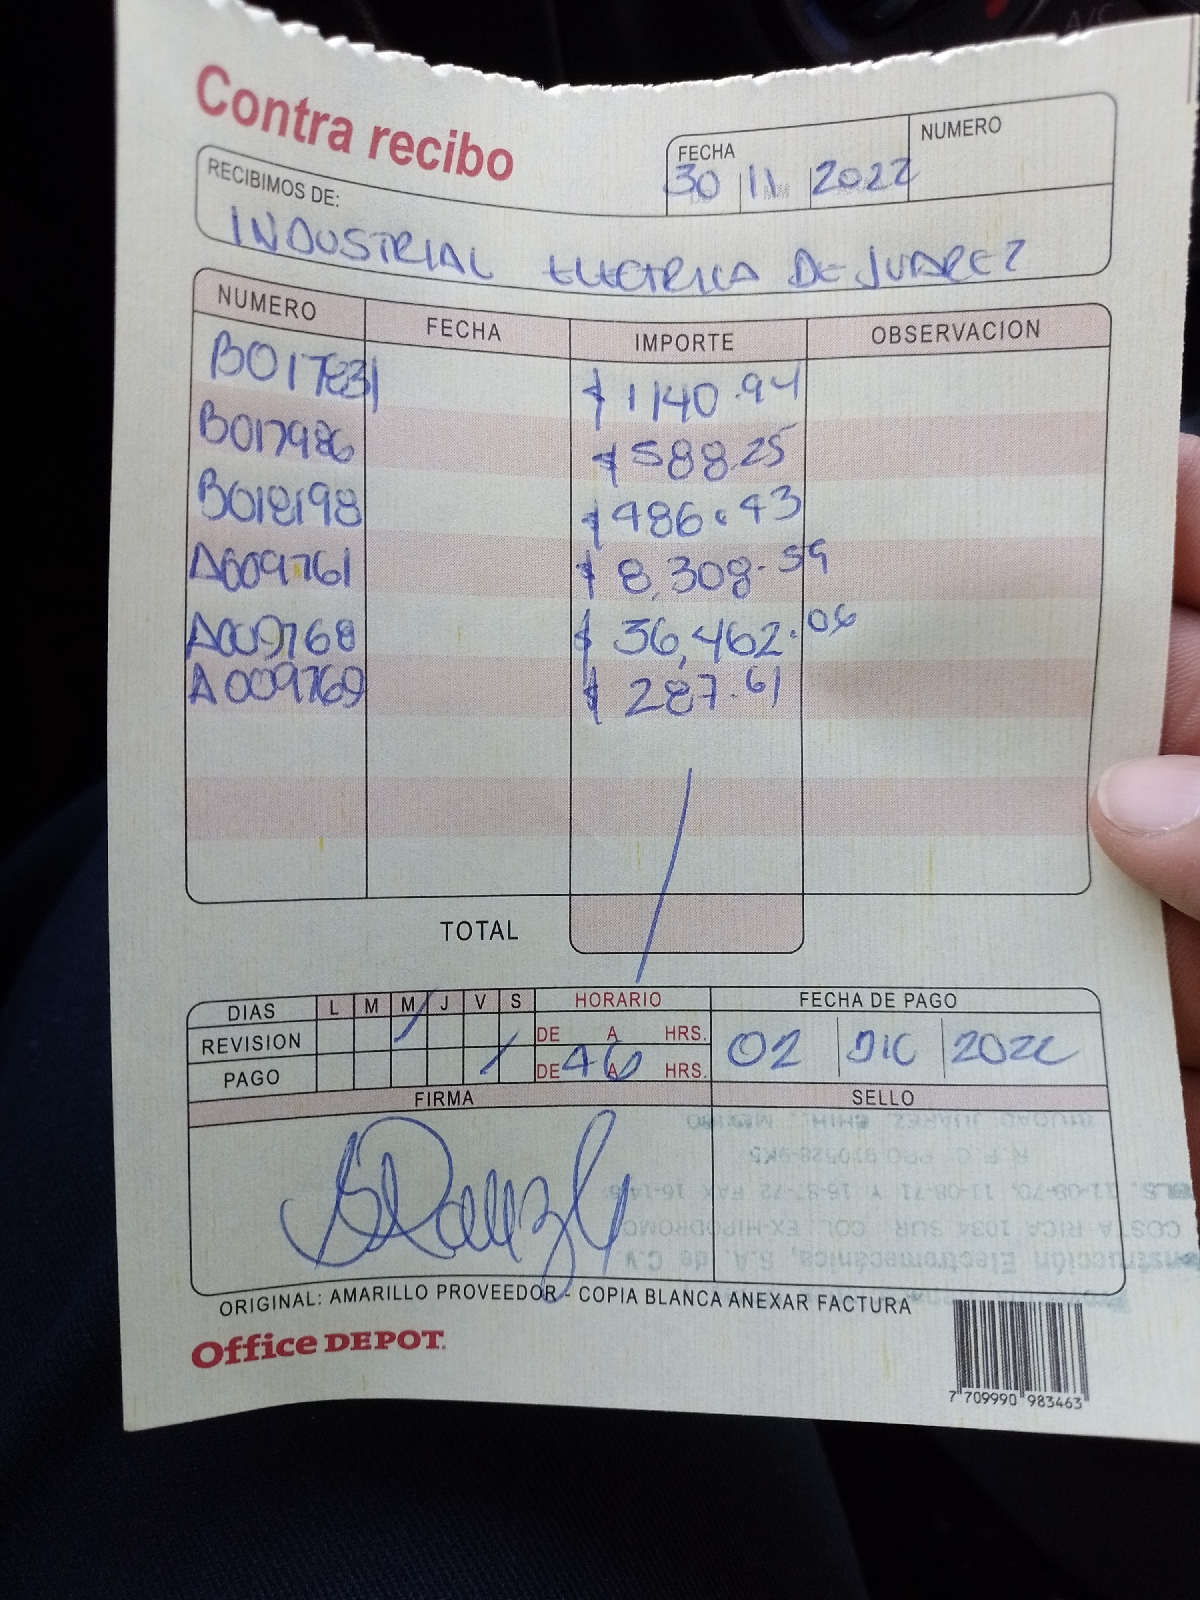 Contra recibo
FECHA NUMERO
30 11 2022
RECIBIMOS DE:
INDUSTRIAL ELECTRICA DE JUAREZ
NUMERO FECHA IMPORTE OBSERVACION
B017831 $ 1140.94
B017986 $ 588.25
B018198 $ 486.43
A009761 $ 8,308.59
A009768 $ 36,462.06
A009769 $ 287.61
TOTAL
DIAS L M M J V S HORARIO FECHA DE PAGO
REVISION DE A HRS.
02 DIC 2022
PAGO DE 4 A 6 HRS.
FIRMA SELLO
CIUDAD JUAREZ CHIH. MEXICO
R.F.C. PRO-910528-9K5
11-08-70, 11-08-71 Y 16-87-72 FAX 16-14-6
COSTA RICA 1034 SUR COL EX-HIPODROMO
Electromecánica, S.A. de C.V.
ORIGINAL: AMARILLO PROVEEDOR - COPIA BLANCA ANEXAR FACTURA
Office DEPOT.
7 709990 983463